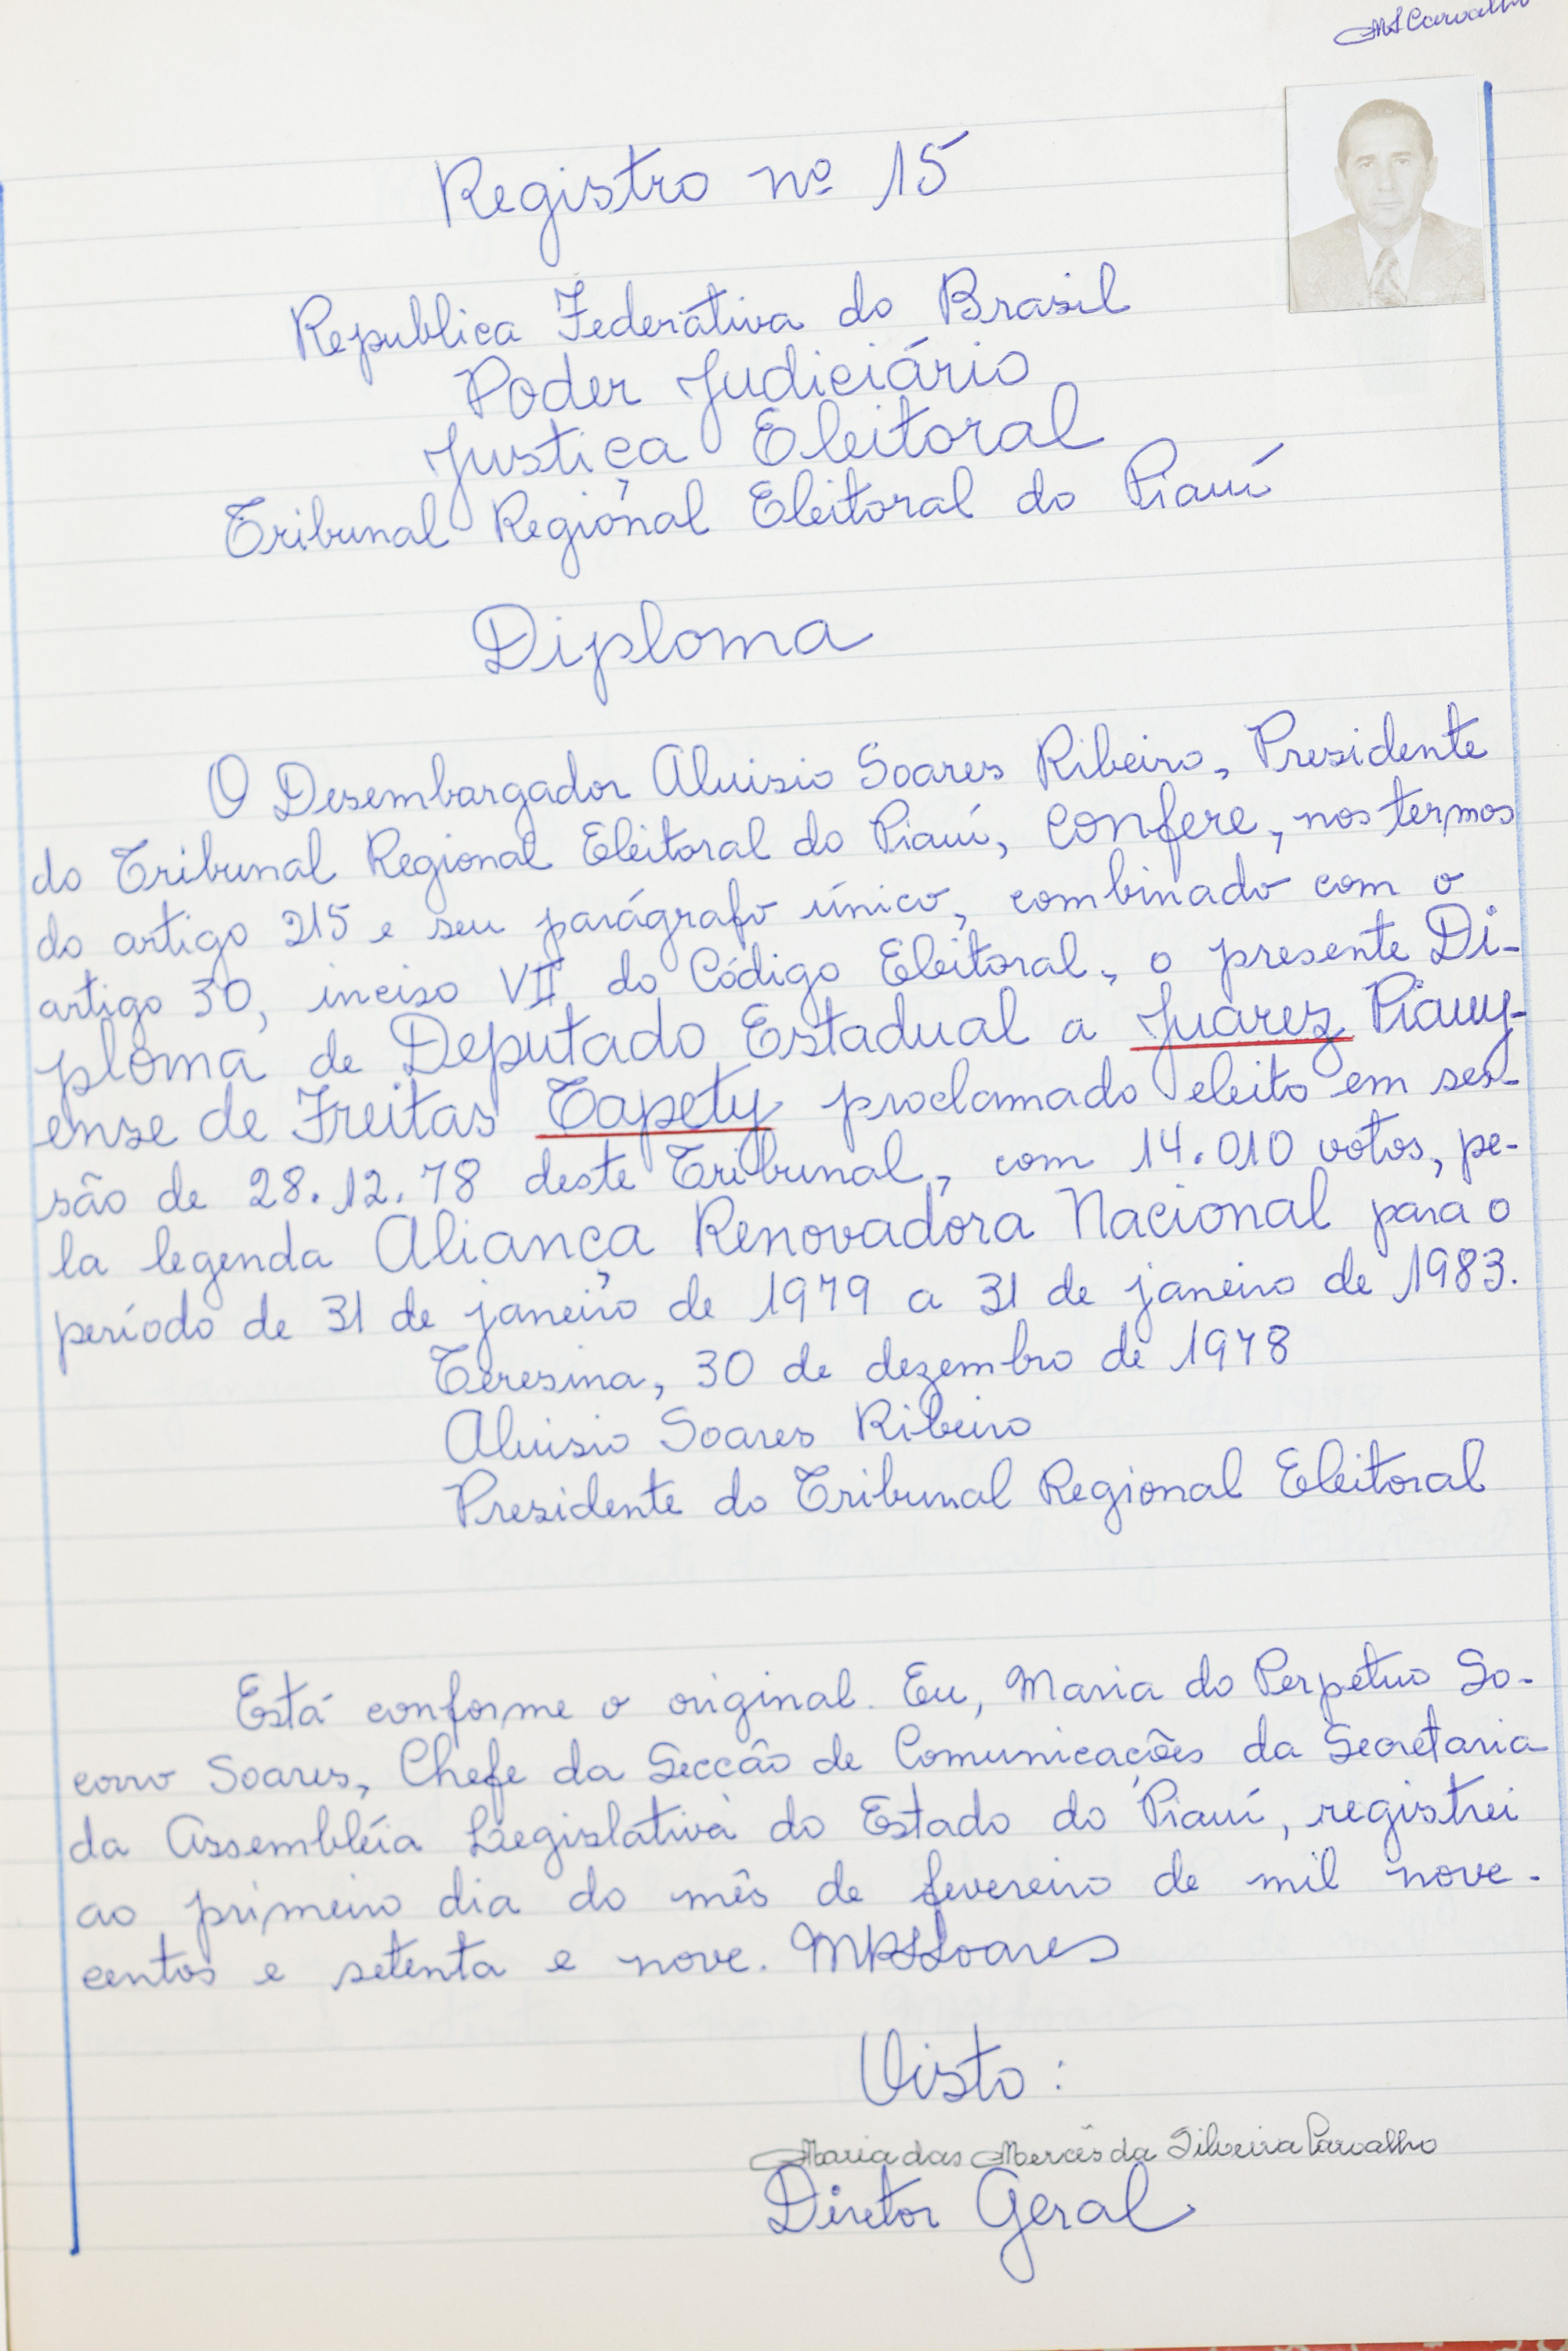 MSCarvalho
Registro nº 15
Republica Federativa do Brasil
Poder Judiciário
Justiça Eleitoral
Tribunal Regional Eleitoral do Piauí
Diploma
O Desembargador Aluisio Soares Ribeiro, Presidente
do Tribunal Regional Eleitoral do Piauí, confere, nos termos
do artigo 215 e seu parágrafo único, combinado com o
artigo 30, inciso VII do Código Eleitoral, o presente Di-
ploma de Deputado Estadual a Juarez Piauy-
ense de Freitas Tapety proclamado eleito em ses-
são de 28.12.78 deste Tribunal, com 14.010 votos, pe-
la legenda Aliança Renovadora Nacional para o
período de 31 de janeiro de 1979 a 31 de janeiro de 1983.
Teresina, 30 de dezembro de 1978
Aluisio Soares Ribeiro
Presidente do Tribunal Regional Eleitoral
Está conforme o original. Eu, Maria do Perpétuo So-
corro Soares, Chefe da Secção de Comunicações da Secretaria
da Assembléia Legislativa do Estado do Piauí, registrei
ao primeiro dia do mês de fevereiro de mil nove-
centos e setenta e nove. MPSSoares
Visto:
Maria das Mercês da Silveira Carvalho
Diretor Geral